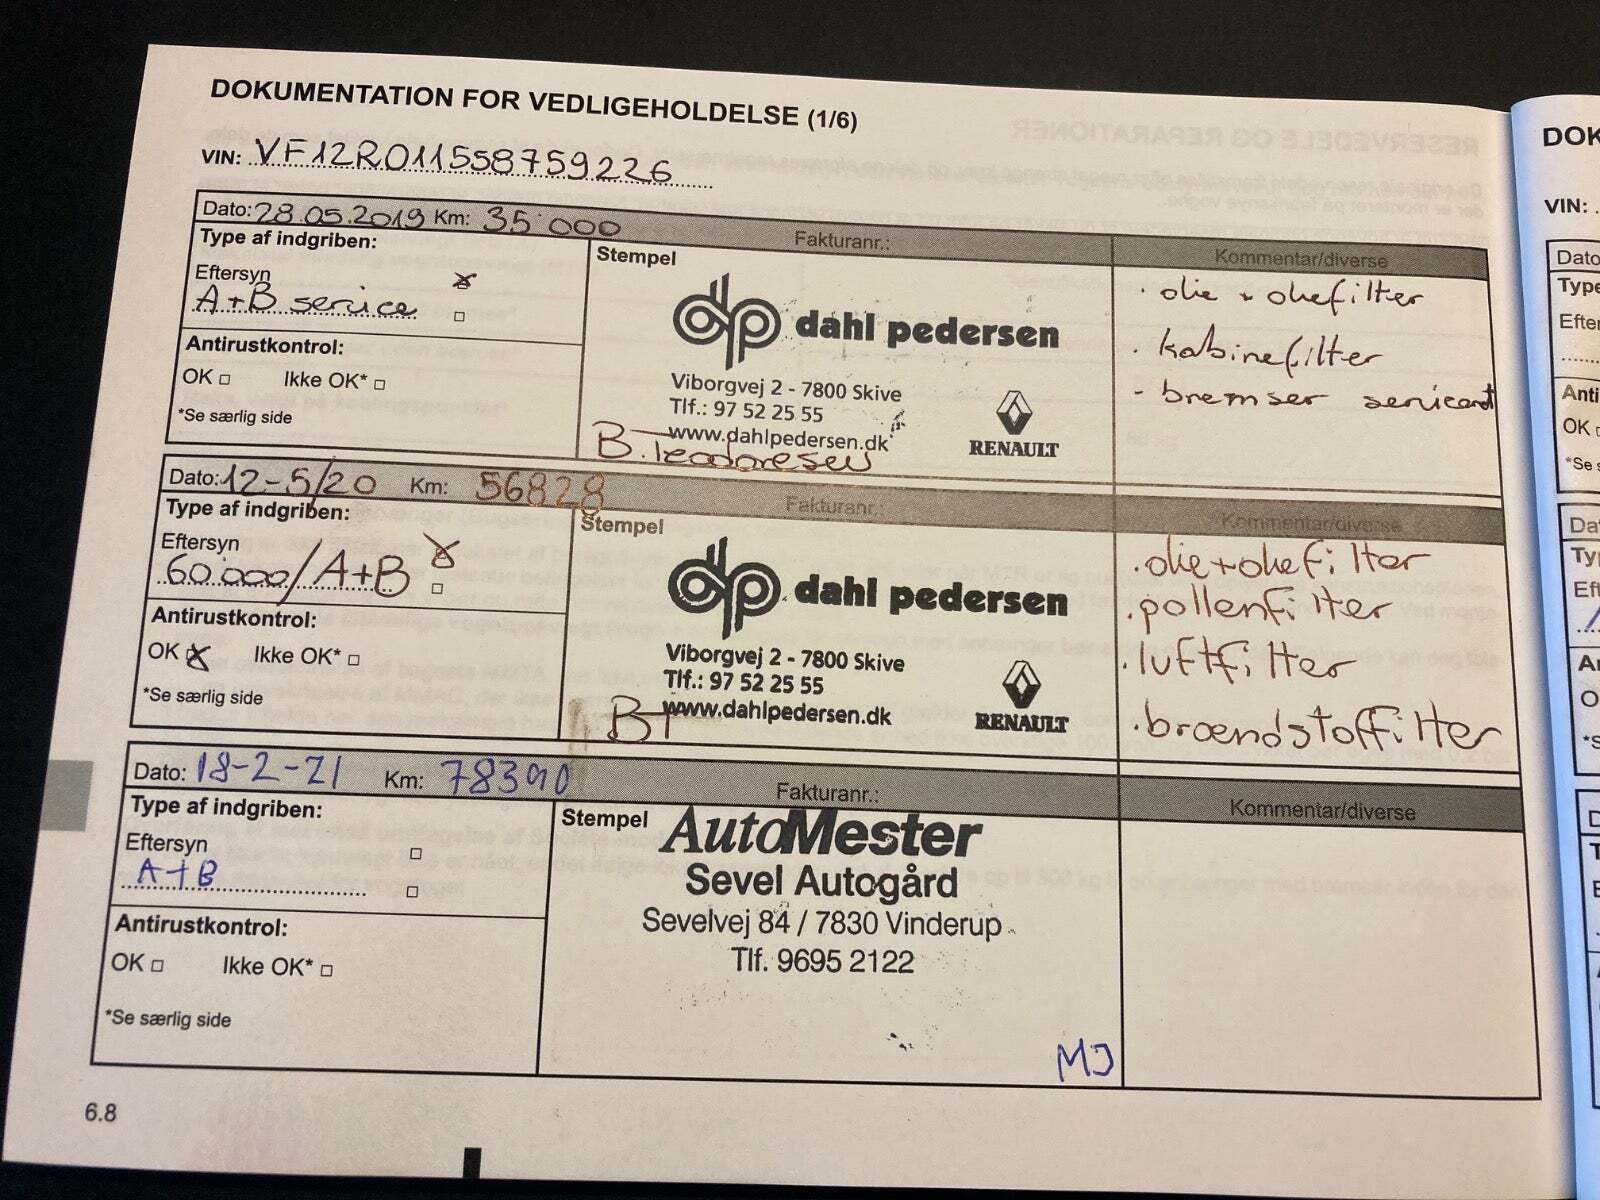 DOKUMENTATION FOR VEDLIGEHOLDELSE (1/6)
VIN: VF12R011558759226
Dato: 28.05.2019 Km: 35'000
Fakturanr.:
Kommentar/diverse
Type af indgriben:
Eftersyn
A+B service
Antirustkontrol:
OK Ikke OK*
*Se særlig side
Stempel
dp dahl pedersen
Viborgvej 2 - 7800 Skive
Tlf.: 97 52 25 55
www.dahlpedersen.dk
RENAULT
· olie + oliefilter
· kabinefilter
- bremser
Dato: 12-5/20 Km: 56828
Fakturanr.:
Kommentar/diverse
Type af indgriben:
Eftersyn
60.000/A+B
Antirustkontrol:
OK Ikke OK*
*Se særlig side
Stempel
dp dahl pedersen
Viborgvej 2 - 7800 Skive
Tlf.: 97 52 25 55
www.dahlpedersen.dk
BT
RENAULT
· olie+oliefilter
· pollenfilter
· luftfilter
· brændstoffilter
Dato: 18-2-21 Km: 78390
Fakturanr.:
Kommentar/diverse
Type af indgriben:
Eftersyn
A+B
Antirustkontrol:
OK Ikke OK*
*Se særlig side
Stempel
AutoMester
Sevel Autogård
Sevelvej 84 / 7830 Vinderup
Tlf. 9695 2122
MJ
6.8
DOK
VIN:
Dato
Type
Efter
Anti
OK
*Se